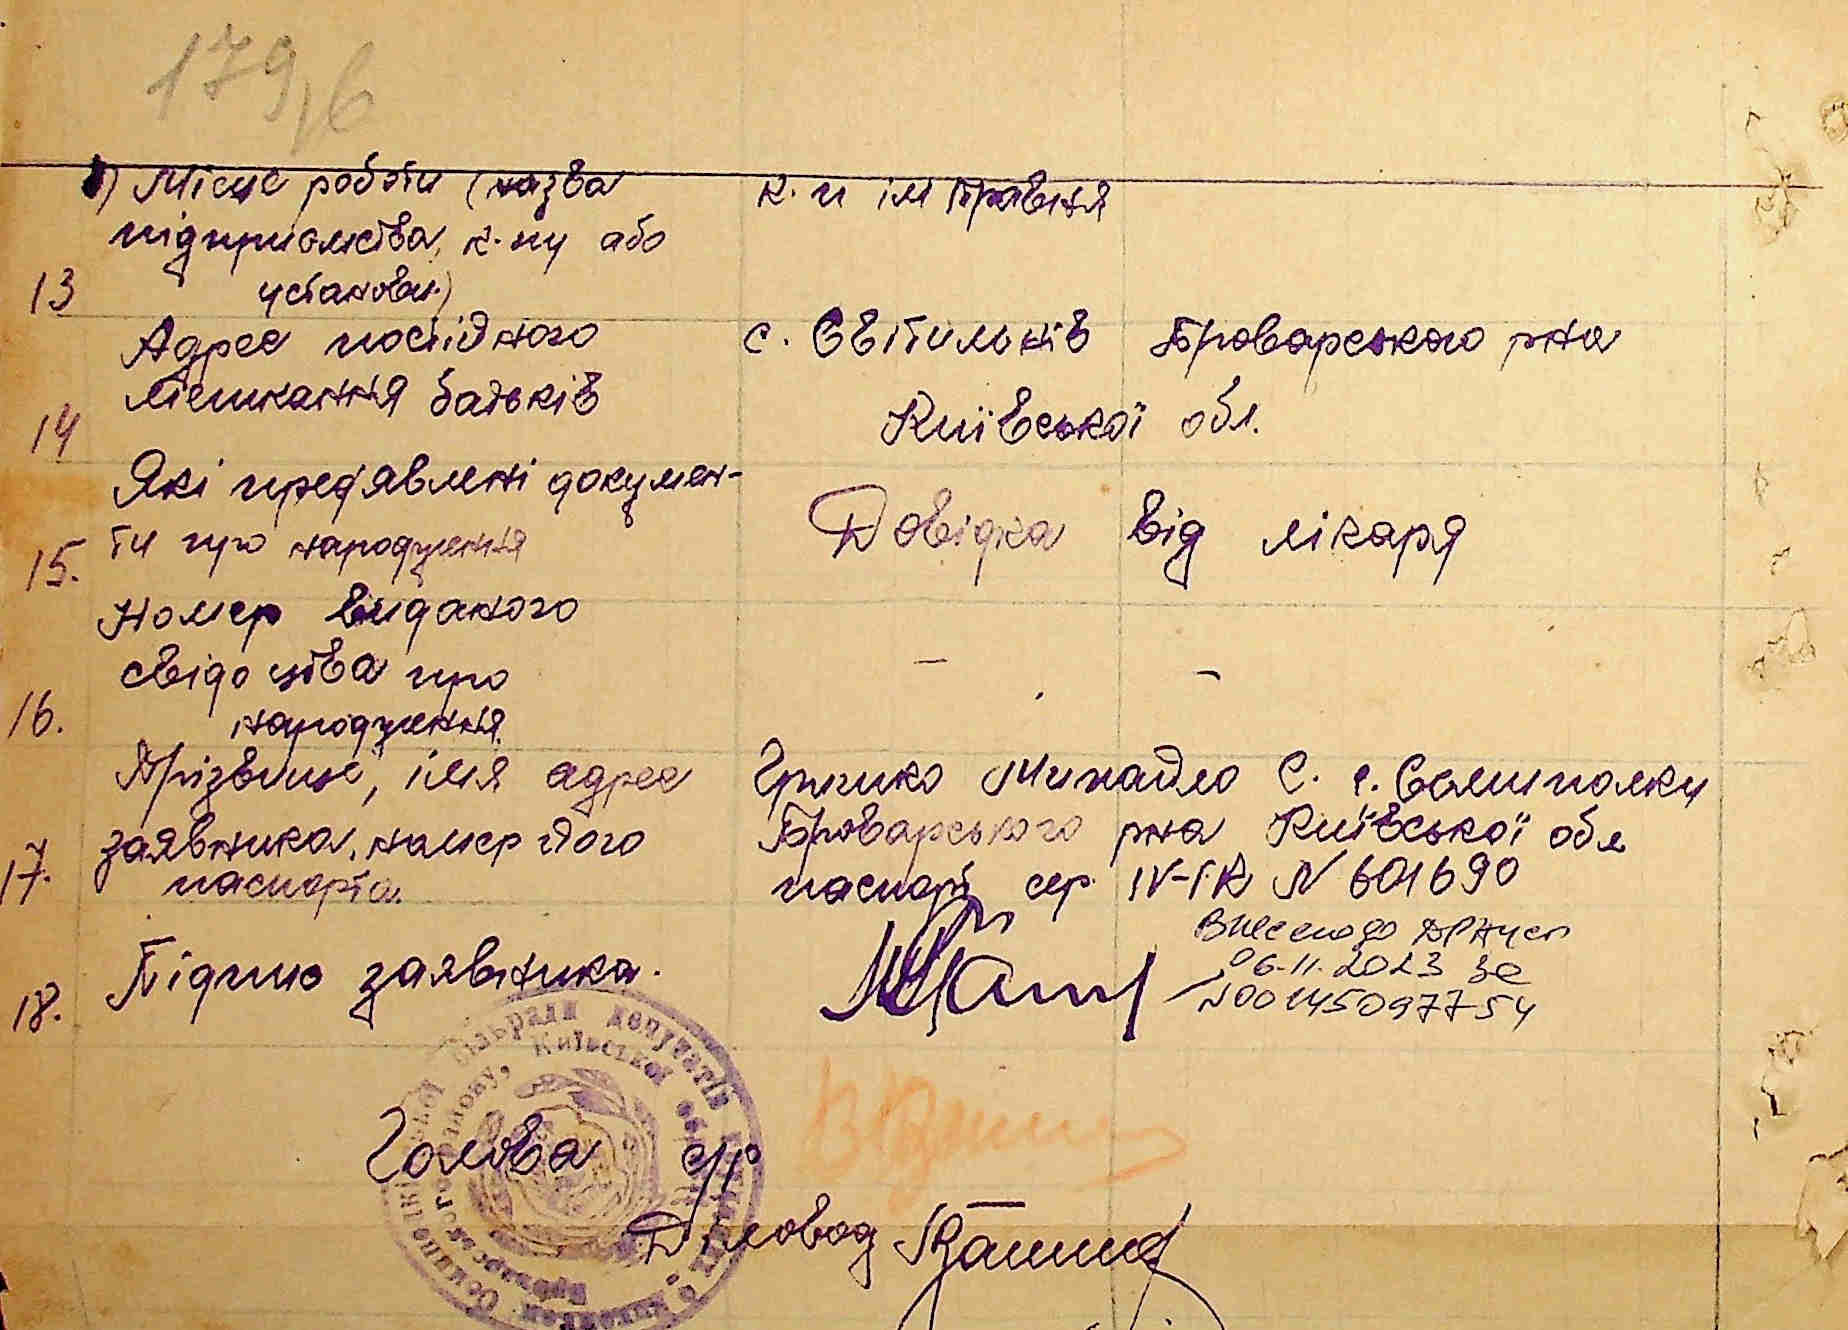 179,в
в) Місце роботи (назва
підприємства, к-пу або
установи)
к-п ім
13
Адрес постійного
мешкання батьків
с. Світильнів Броварського р-на
Київської обл.
14
Які пред'явлені докумен-
ти про народження
Довідка від лікаря
15.
Номер виданого
свідоцтва про
народження
– –
16.
Прізвище, імя адрес
заявника, номер його
паспорта.
Михайло С. с. Семиполки
Броварського р-на Київської обл
паспорт сер. IV-ГК N 601690
17.
Підпис заявника.
Внесено до ДРАЦСГ
06.11.2023 за
N00145097754
18.
Голова с/р
Діловод
сільради депутатів
Київської області